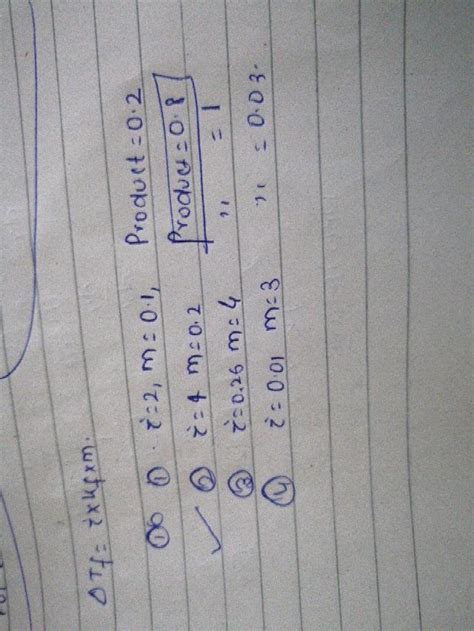 ΔTf = i×Kf×m.
① i=2, m=0.1, Product=0.2
② i=4 m=0.2 Product=0.8
③ i=0.26 m=4 ,, = 1
④ i=0.01 m=3 ,, = 0.03.